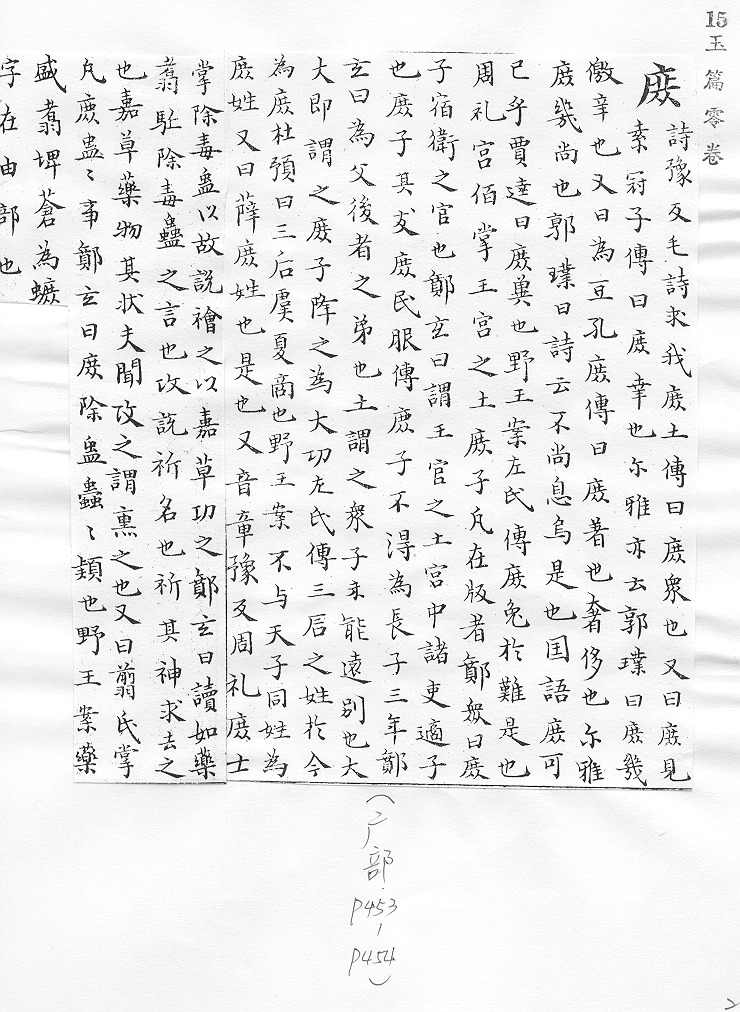 15玉篇零卷
庻
詩豫反毛詩求我庻士傳曰庻衆也又曰庻見
素冠子傳曰庻幸也尓雅亦云郭璞曰庻幾
儌幸也又曰為豆孔庻傳曰庻著也奢侈也尓雅
庻幾尚也郭璞曰詩云不尚息烏是也囯語庻可
已乎賈逵曰庻兾也野王案左氏傳庻免於難是也
周礼宫伯掌王宫之士庻子凡在版者鄭衆曰庻
子宿衛之官也鄭玄曰謂王官之士宫中諸吏適子
也庻子其攴庻民服傳庻子不淂為長子三年鄭
玄曰為父後者之弟也士謂之衆子未能遠别也大
大即謂之庻子降之為大功左氏傳三后之姓於今
為庻杜預曰三后虞夏商也野王案不与天子同姓為
庻姓又曰薛庻姓也是也又音章豫反周礼庻士
掌除毒蛊以故説禬之以嘉草功之鄭玄曰讀如藥
蠚駐除毒蠱之言也攻説祈名也祈其神求去之
也嘉草藥物其状夫聞攻之謂熏之也又曰翦氏掌
凡庻蛊〻事鄭玄曰庻除蛊蠱〻類也野王案藥
盛蠚埤蒼為蟅
字在由部也
(广部
P453
-
P454)
2